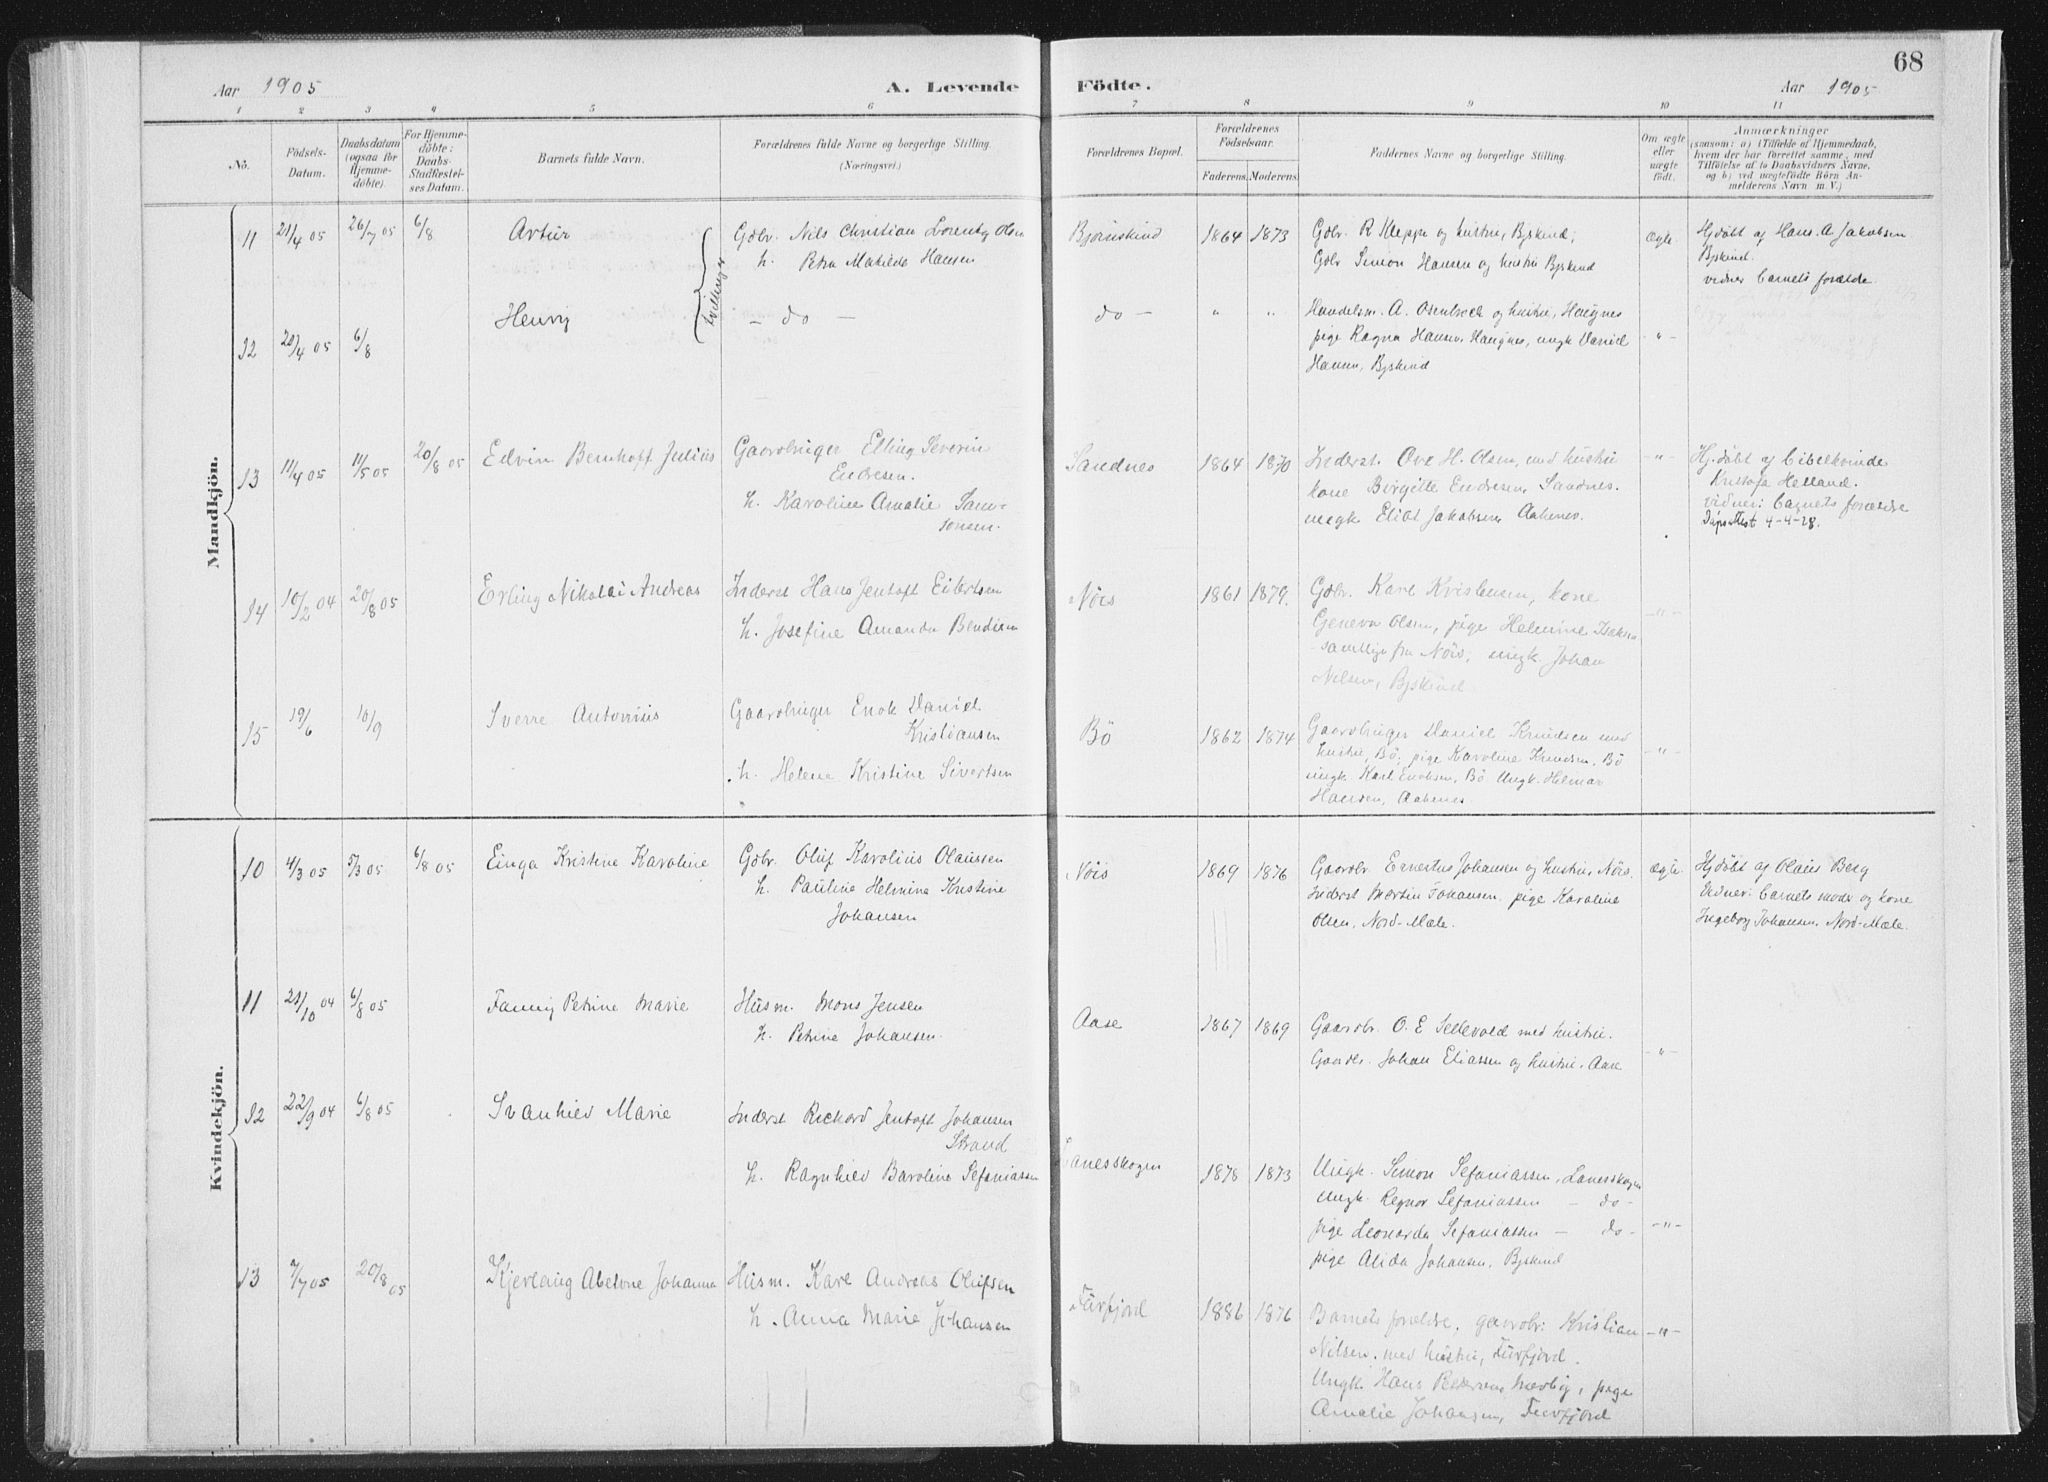 68
Aar 1905
A. Levende
Födte.
Aar 1905
1 2 3 4 5 6 7 8 9 10 11
No.
Födsels-
Datum.
Daabsdatum
(ogsaa for
Hjemme-
döbte).
For Hjemme-
döbte:
Daabs-
Stadfæstel-
ses Datum.
Barnets fulde Navn.
Forældrenes fulde Navne og borgerlige Stilling.
(Næringsvei.)
Forældrenes Bopæl.
Forældrenes
Födselsaar.
Faderens. Moderens.
Faddernes Navne og borgerlige Stilling.
Om ægte
eller
uægte
födt.
Anmærkninger
(saasom: a) i Tilfælde af Hjemmedaab,
hvem der har forrettet samme, med
Tilföielse af to Daabsvidners Navne,
og b) ved uægtefödte Börn An-
melderens Navn m. V.)
Mandkjön.
11 21/4 05 26/7 05 6/8 Artur
Gdbr. Nils Christian Lorentz Olsen
h. Petra Matilde Hansen
Bjørnskind 1864 1873
Gdbr. R Kleppe og hustru, Bjskind;
Gdbr Simon Hansen og hustru Bjskind
Ægte.
Hjdöbt af Hans A. Jakobsen
Bjskind.
vidner barnets forældre
tvillinger
12 21/4 05 6/8 Henry
- do -
do - " "
Handelsm. A. Osenbrock og hustru, Haugnes
pige Ragna Hansen Haugnes, ungk Daniel
Hansen, Bjskind
- " -
13 11/4 05 11/5 05 20/8 05 Edvin Bernhoft Julius
Gaardbruger Elling Severin
Endresen.
h. Karoline Amalie Sam-
sonsen.
Sandnes 1864 1870
Inderst. Ove H. Olsen, med hustru
kone Birgitte Endresen, Sandnes.
ungk Eliot Jakobsen Aabenes.
- " -
Hj.döbt af bibelkvinde
Kristofa Helland.
vidner: barnets forældre
Dåpsattest 4-4-28.
14 10/2 04 20/8 05 Erling Nikolai Andreas
Inderst Hans Jentoft Eilertsen
h. Josefine Amanda Bendiksen
Nöis 1861 1879.
Gdbr. Karl Kristensen, kone
Geneva Olsen, pige Helmine Isaksen
samtlige fra Nöis, ungk. Johan
Nilsen, Bjskind
- " -
15 19/6 10/9 Sverre Antonius
Gaardbruger Enok Daniel
Kristiansen
h. Helene Kristine Sivertsen
Bö 1862 1874
Gaardbruger Daniel Knudsen med
hustru, Bö, pige Karoline Knudsen, Bö
ungk. Karl Enoksen, Bö Ungk. Helmar
Hansen, Aabenes.
- " -
Kvindekjön.
10 4/3 05 5/3 05 6/8 05 Einga Kristine Karoline
Gdbr. Oluf Karolius Olaussen
h. Pauline Helmine Kristine
Johansen
Nöis 1869 1876
Gaardbr. Ernertus Johansen og hustru, Nöis.
Inderst Martin Johansen, pige Karoline
Olsen, Nord-Mæle.
Ægte.
Hjdöbt af Olaus Berg
Vidner: barnets moder og kone
Ingeborg Johansen, Nord-Mæle.
11 21/10 04 6/8 05 Fanny Petrine Marie
Husm. Mons Jensen
h. Petrine Johansen.
Aase 1867 1869
Gaardbr. O. E Sellevold med hustru.
Gaardbr. Johan Eliassen og hustru, Aase
- " -
12 22/9 04 6/8 05 Svanhild Marie
Inderst Richard Jentoft Johansen
Strand
h. Ragnhild Baroline Sefaniassen
Lanesskogen 1878 1873
Ungk. Simon Sefaniassen, Lanesskogen
Ungk. Regnor Sefaniassen - do -
pige Leonarda Sefaniassen - do -
pige Alida Johansen, Bjskind
- " -
13 7/7 05 20/8 05 Kjerlaug Abelone Johanna
Husm. Karl Andreas Olufsen
h. Anna Marie Johansen
Fiurfjord 1886 1876
Barnets forældre, gaardbr: Kristian
Nilsen, med hustru, Fiurfjord.
Ungk Hans Pedersen, pige
Amalie Johansen, Fiurfjord
- " -